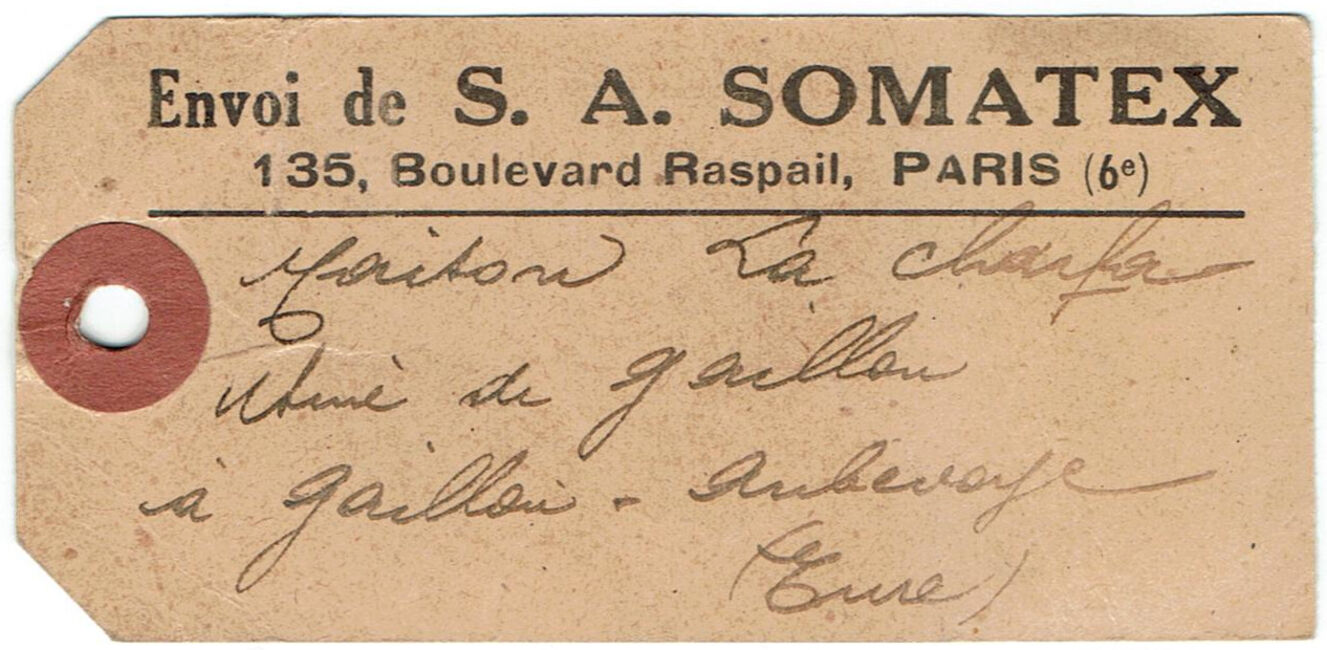 Envoi de S. A. SOMATEX
135, Boulevard Raspail, PARIS (6e)
Maison La Charfa
Usine de Gaillon
à Gaillon - Aubevoye
(Eure)